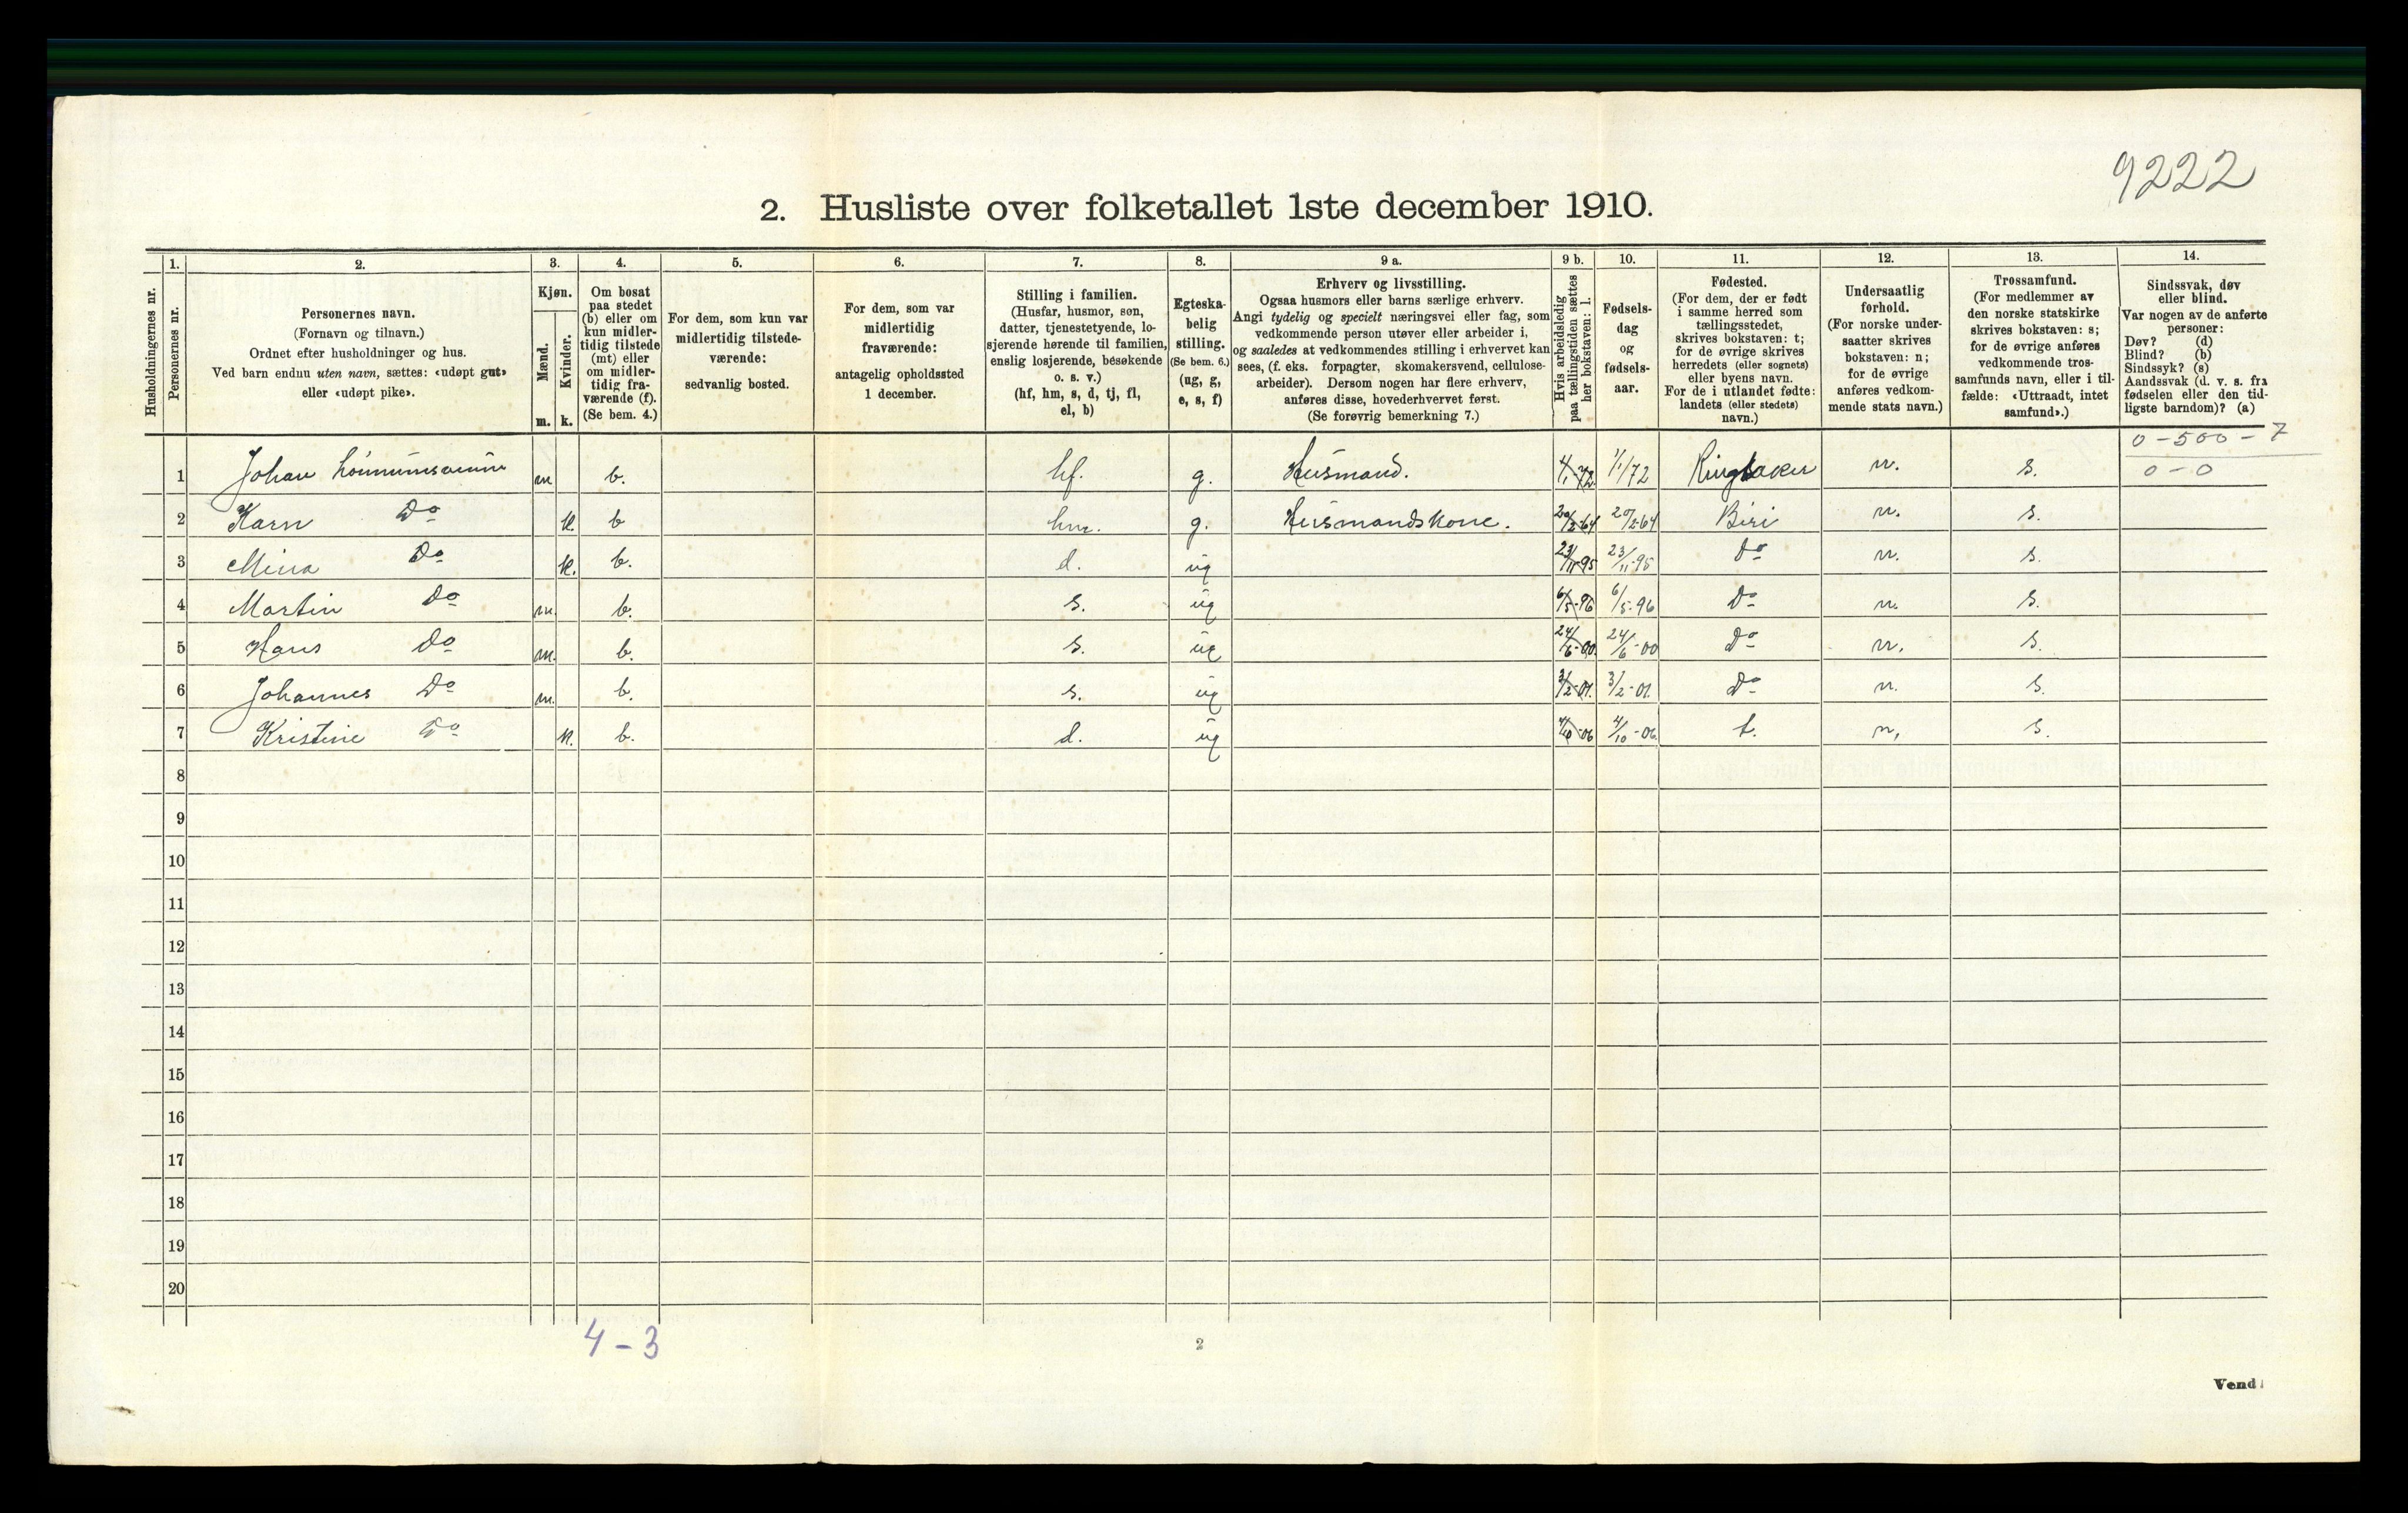 9222
2. Husliste over folketallet 1ste december 1910.
Husholdningernes nr.
1. Personernes nr.
2. Personernes navn. (Fornavn og tilnavn.) Ordnet efter husholdninger og hus. Ved barn endnu uten navn, sættes: «udøpt gut» eller «udøpt pike».
3. Kjøn. Mænd. m. Kvinder. k.
4. Om bosat paa stedet (b) eller om kun midlertidig tilstede (mt) eller om midlertidig fraværende (f). (Se bem. 4.)
5. For dem, som kun var midlertidig tilstedeværende: sedvanlig bosted.
6. For dem, som var midlertidig fraværende: antagelig opholdssted 1 december.
7. Stilling i familien. (Husfar, husmor, søn, datter, tjenestetyende, losjerende hørende til familien, enslig losjerende, besøkende o. s. v.) (hf, hm, s, d, tj, fl, el, b)
8. Egteskabelig stilling. (Se bem. 6.) (ug, g, e, s, f)
9 a. Erhverv og livsstilling. Ogsaa husmors eller barns særlige erhverv. Angi tydelig og specielt næringsvei eller fag, som vedkommende person utøver eller arbeider i, og saaledes at vedkommendes stilling i erhvervet kan sees, (f. eks. forpagter, skomakersvend, cellulosearbeider). Dersom nogen har flere erhverv, anføres disse, hovederhvervet først. (Se forøvrig bemerkning 7.)
9 b. Hvis arbeidsledig paa tællingstiden sættes her bokstaven: l.
10. Fødselsdag og fødselsaar.
11. Fødested. (For dem, der er født i samme herred som tællingsstedet, skrives bokstaven: t; for de øvrige skrives herredets (eller sognets) eller byens navn. For de i utlandet fødte: landets (eller stedets) navn.)
12. Undersaatlig forhold. (For norske undersaatter skrives bokstaven: n; for de øvrige anføres vedkommende stats navn.)
13. Trossamfund. (For medlemmer av den norske statskirke skrives bokstaven: s; for de øvrige anføres vedkommende trossamfunds navn, eller i tilfælde: «Uttraadt, intet samfund».)
14. Sindssvak, døv eller blind. Var nogen av de anførte personer: Døv? (d) Blind? (b) Sindssyk? (s) Aandssvak (d. v. s. fra fødselen eller den tidligste barndom)? (a)
0-500-7
0-0
1 Johan m b. hf. g. Husmand. 1/1/72 Ringsaker n. s.
2 Karn Do k. b hm. g. Husmandskone. 20/2-64 20/2-64 Biri n. s.
3 Mina Do k. b. d. ug 23/11-95 23/11-95 Do n. s.
4 Martin Do m. b. s. ug 6/5-96 6/5-96 Do n. s.
5 Hans Do m. b. s. ug 24/6-00. 24/6-00 Do n. s.
6 Johannes Do m. b. s. ug 3/2-01. 3/2-01. Do n. s.
7 Kristine Do k. b. d. ug 4/10-06 4/10-06. t. n. s.
8
9
10
11
12
13
14
15
16
17
18
19
20
4-3
2
Vend!